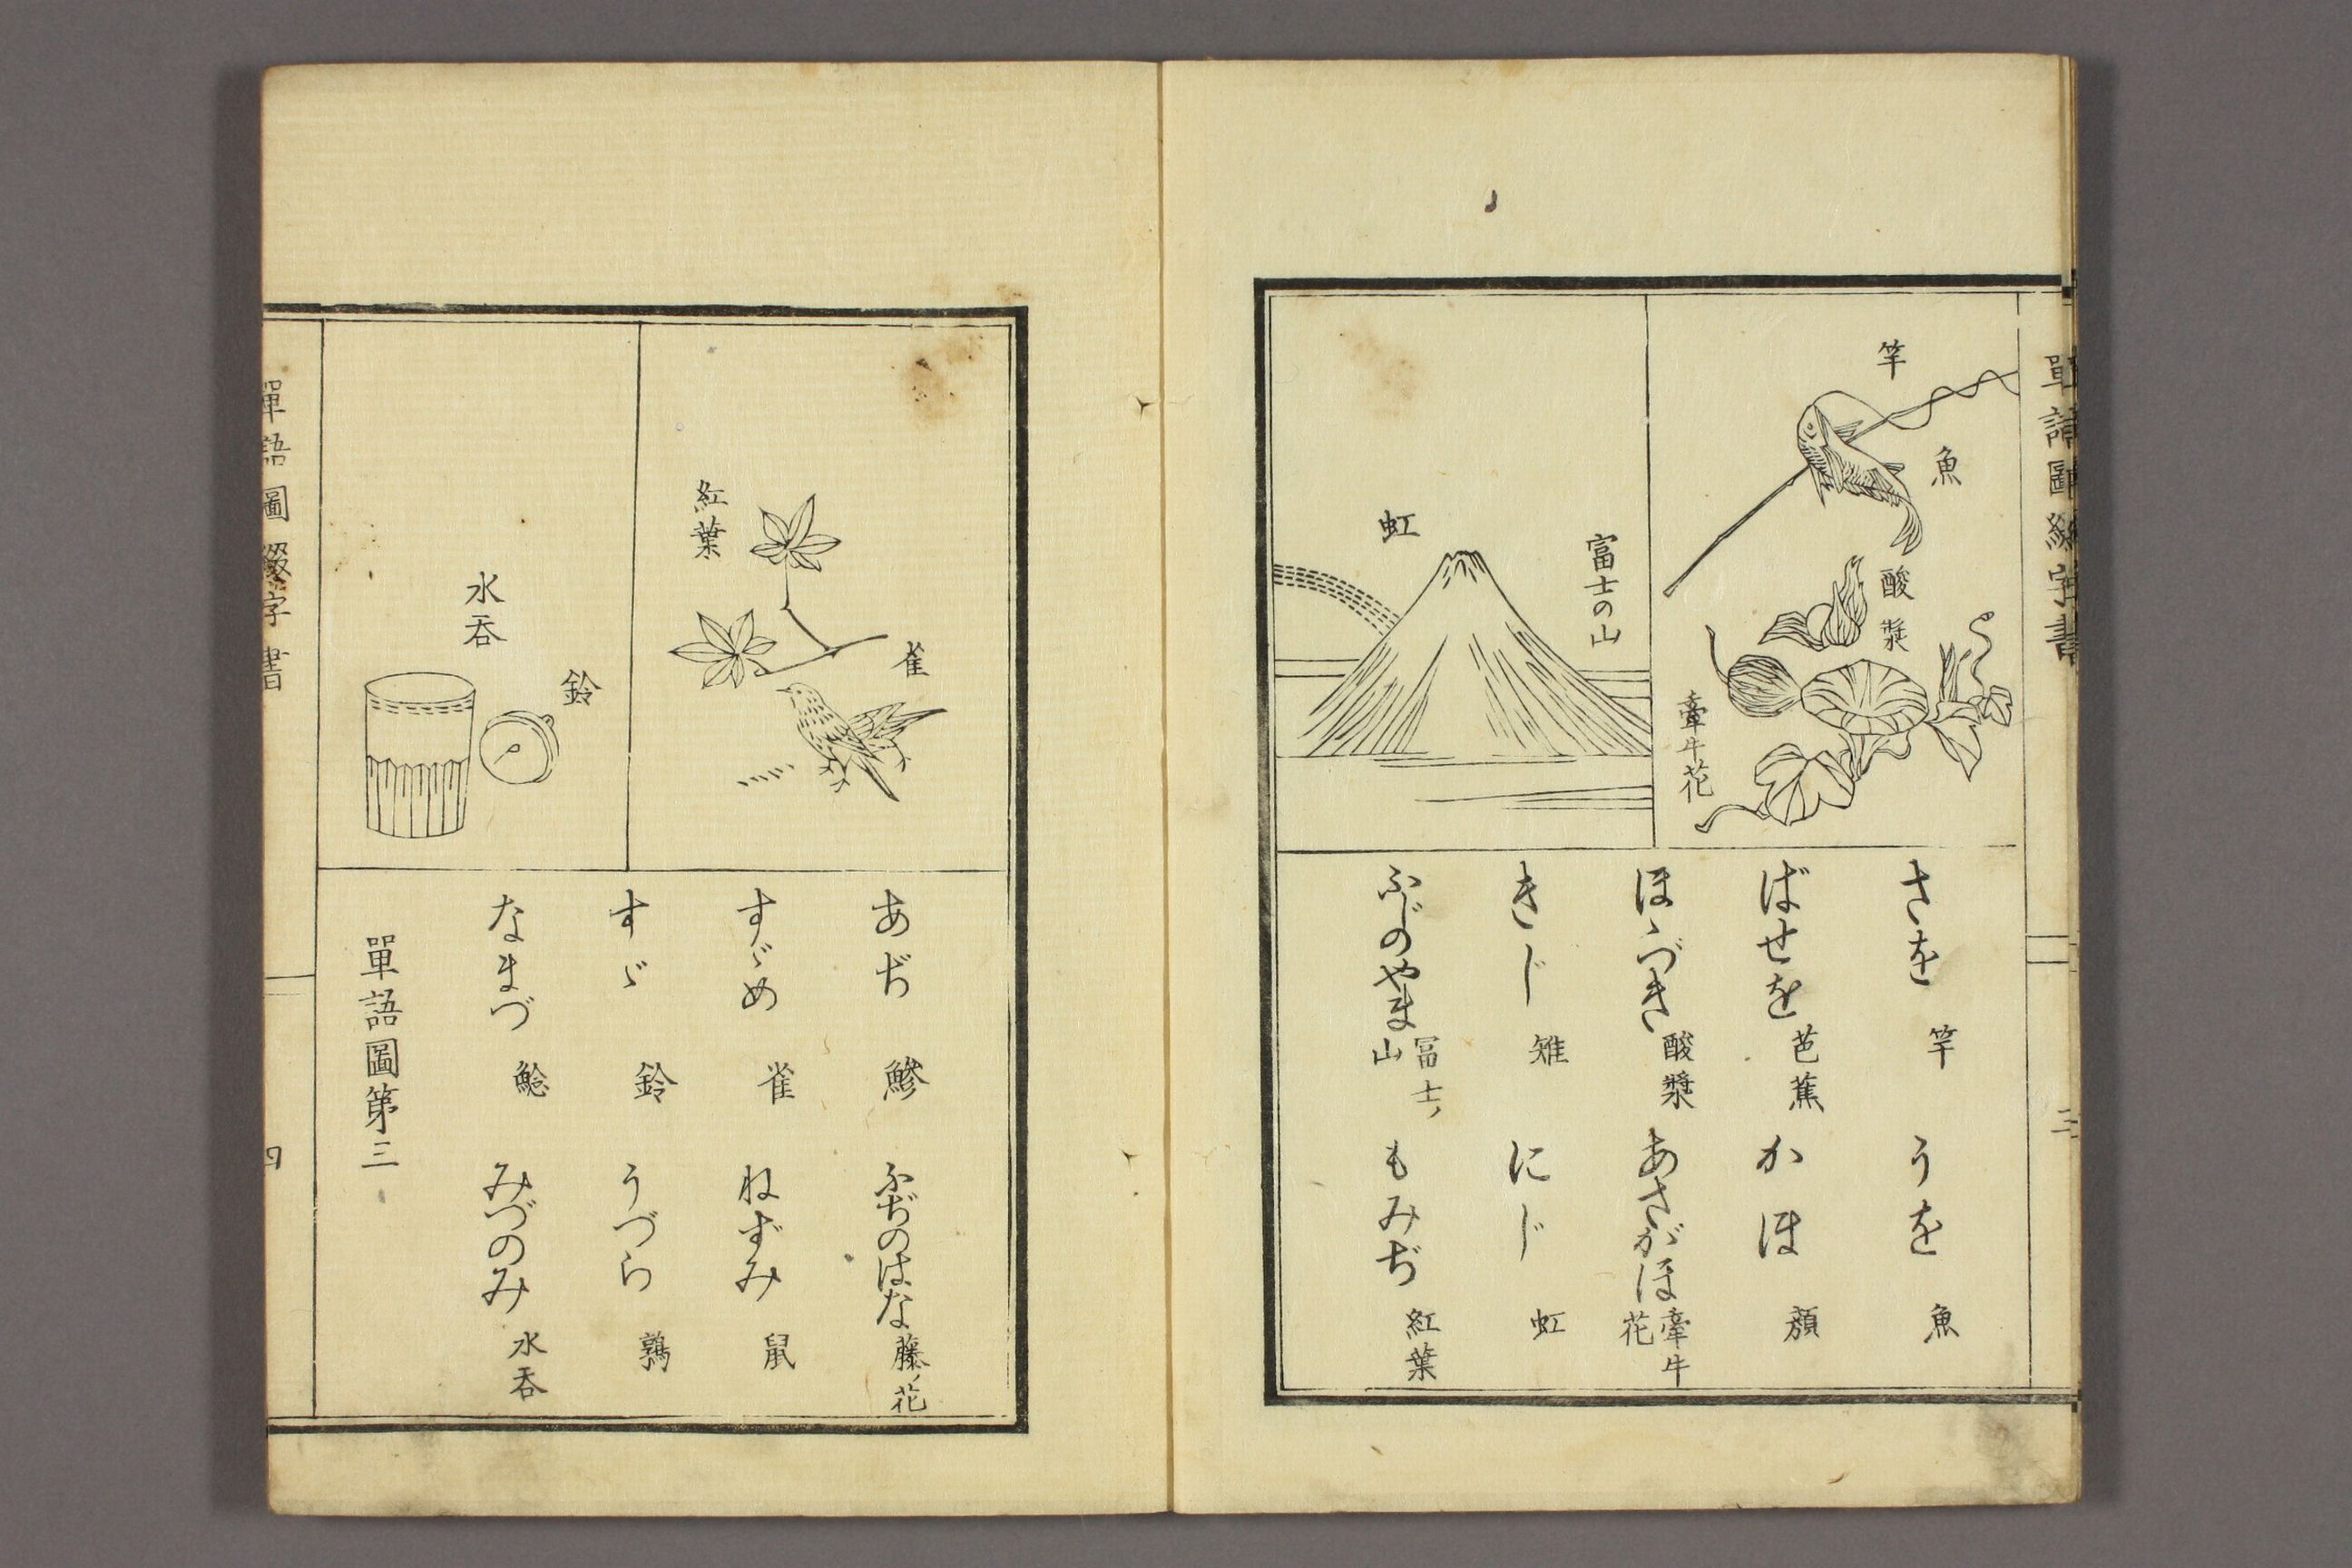 單語圖綴字書
三
竿
魚
酸漿
牽牛花
富士の山
虹
さを 竿
うを 魚
ばせを 芭蕉
かほ 顏
ほゝづき 酸漿
あさがほ 牽牛花
きじ 雉
にじ 虹
ふじのやま 冨士ノ山
もみぢ 紅葉
雀
紅葉
鈴
水呑
あぢ 鰺
ふぢのはな 藤ノ花
すゞめ 雀
ねずみ 鼠
すゞ 鈴
うづら 鶉
なまづ 鯰
みづのみ 水呑
單語圖第三
單語圖綴字書
四